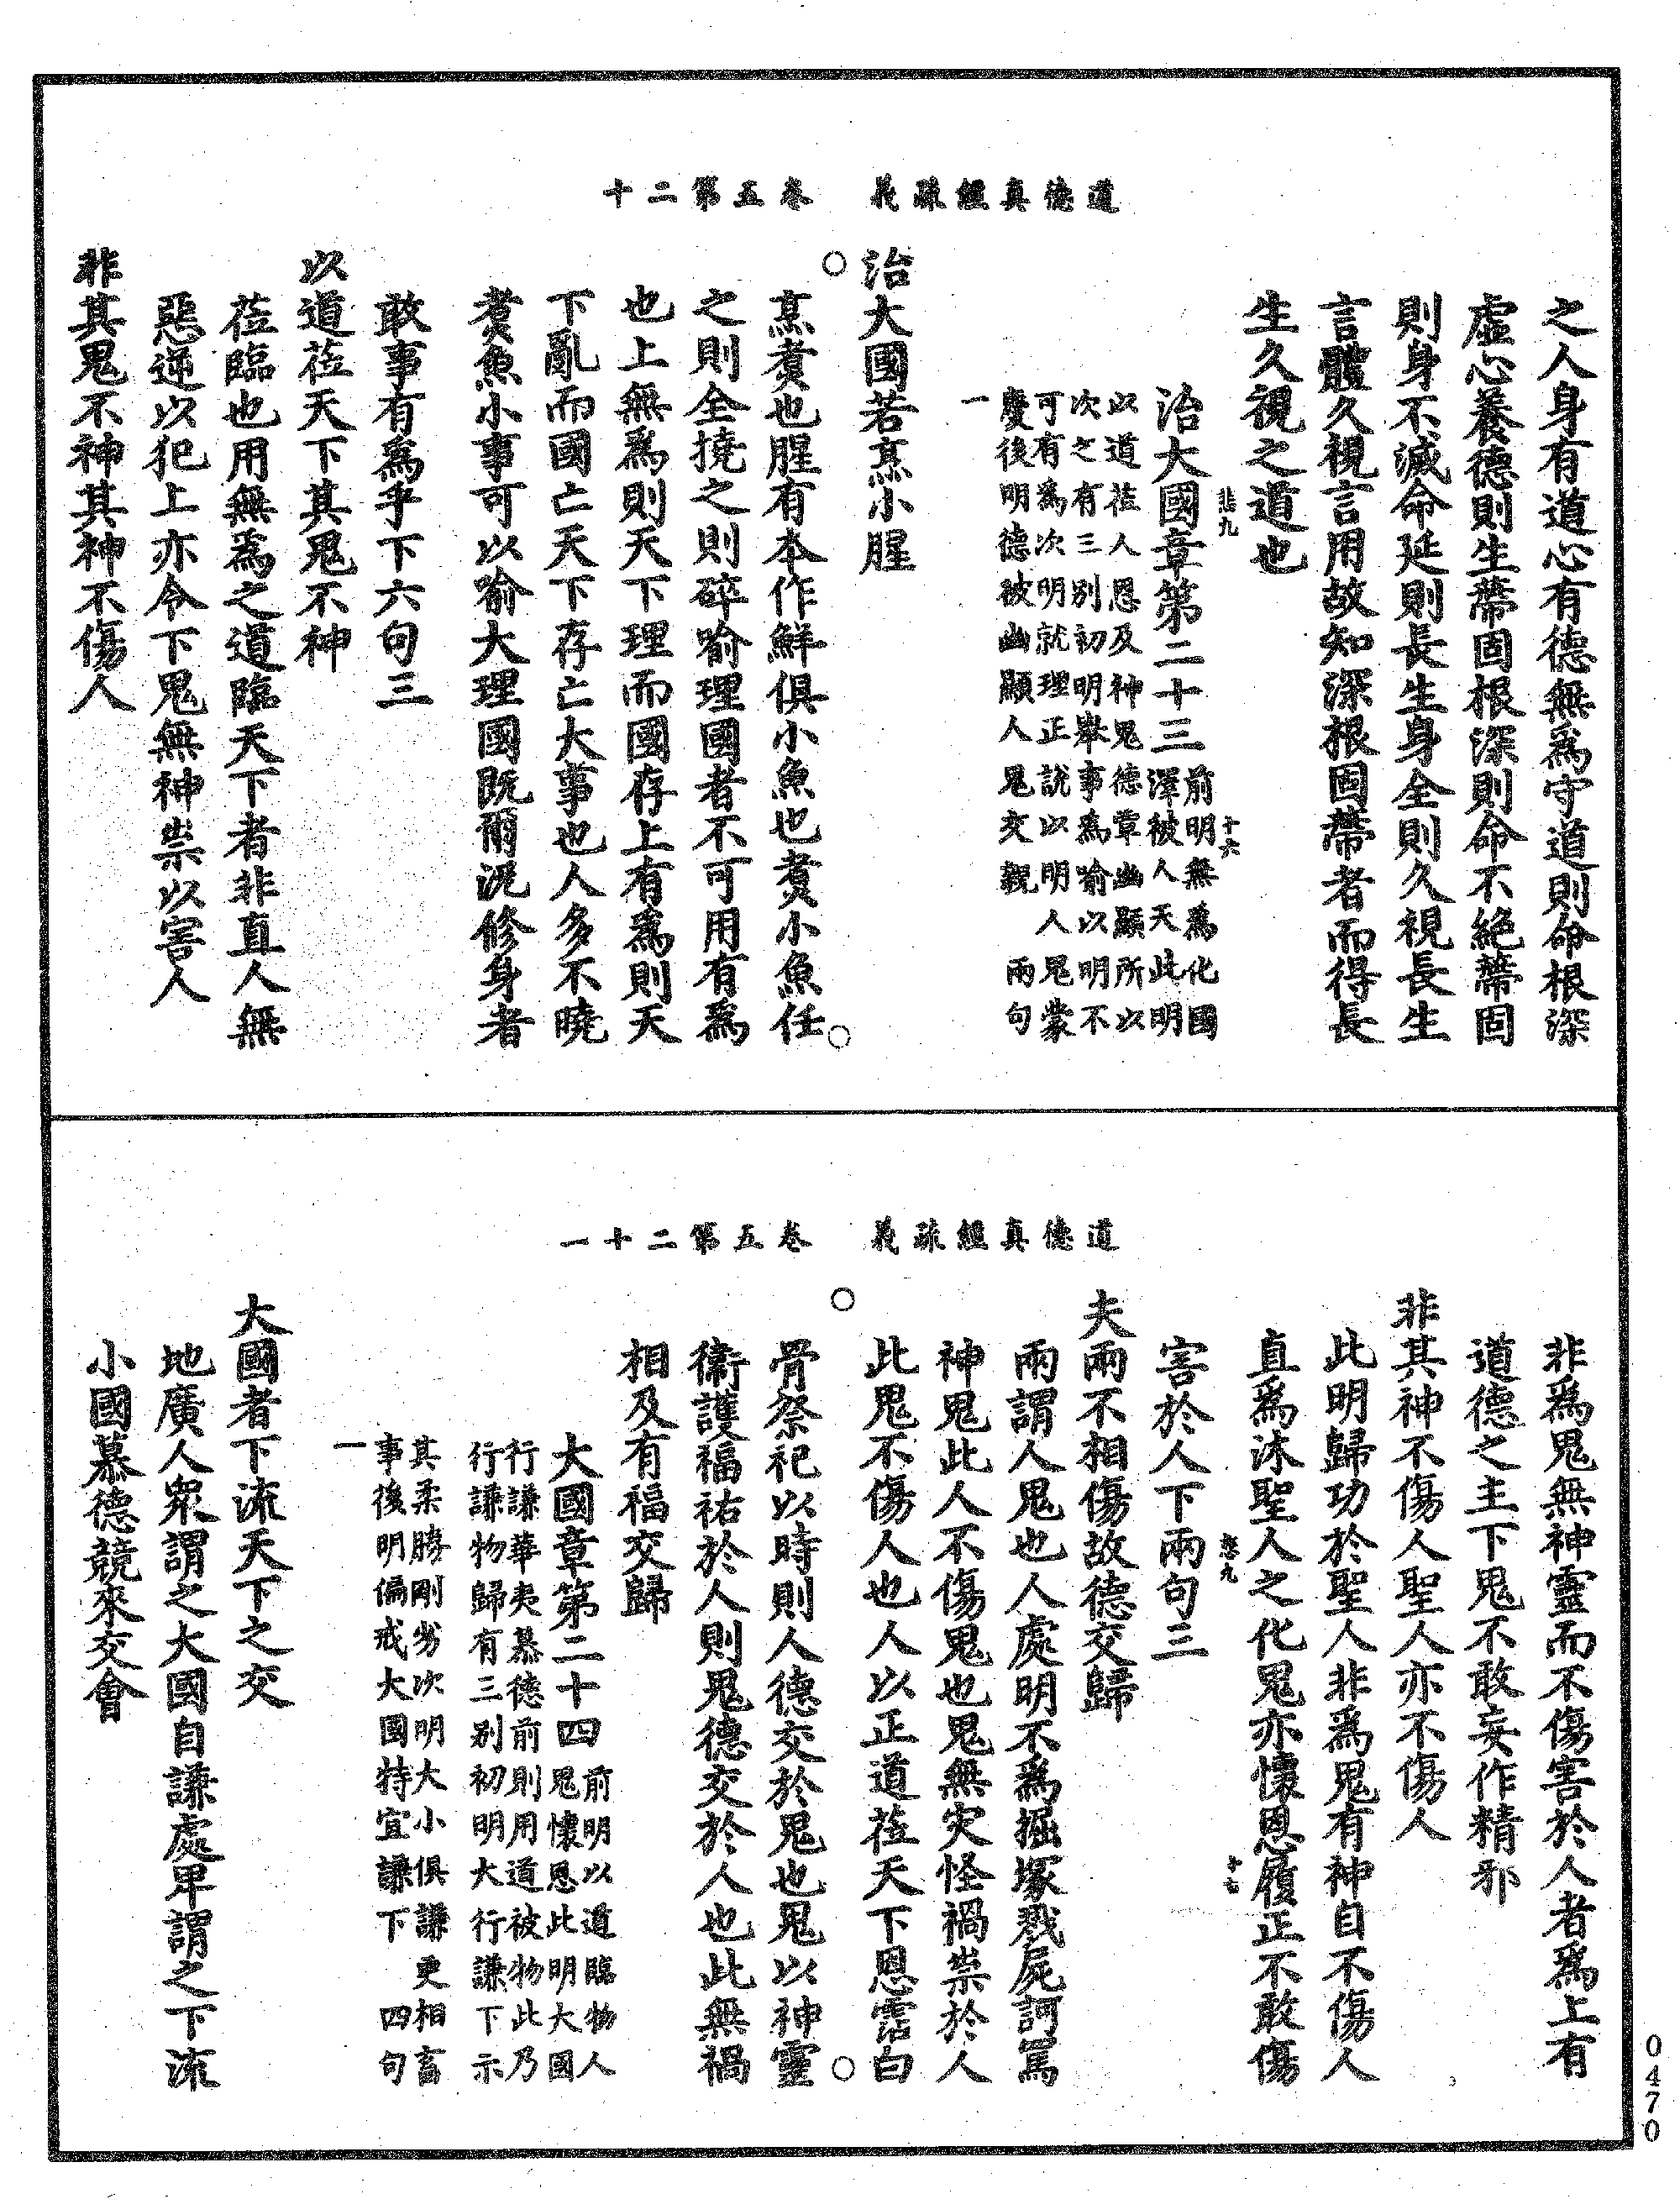 道德真經疏義　卷五第二十
之人身有道心有德無為守道則命根深
虛心養德則生蔕固根深則命不絕蔕固
則身不滅命延則長生身全則久視長生
言體久視言用故知深根固蔕者而得長
生久視之道也
悲九
十六
治大國章第二十三
前明無為化國
澤被人天此明
以道莅人恩及神鬼德章幽顯所以
次之有三別初明舉事為喻以明不
可有為次明就理正說以明人鬼蒙
慶後明德被幽顯人鬼交親　兩句
一
治大國若烹小腥
烹煑也腥有本作鮮俱小魚也煑小魚任
之則全撓之則碎喻理國者不可用有為
也上無為則天下理而國存上有為則天
下亂而國亡天下存亡大事也人多不曉
煑魚小事可以喻大理國既爾況修身者
敢事有為乎下六句三
以道莅天下其鬼不神
莅臨也用無為之道臨天下者非直人無
惡逆以犯上亦令下鬼無神祟以害人
非其鬼不神其神不傷人
道德真經疏義　卷五第二十一
非為鬼無神靈而不傷害於人者為上有
道德之主下鬼不敢妄作精邪
非其神不傷人聖人亦不傷人
此明歸功於聖人非為鬼有神自不傷人
直為沐聖人之化鬼亦懷恩履正不敢傷
悲九
十七
害於人下兩句三
夫兩不相傷故德交歸
兩謂人鬼也人處明不為掘塚戮屍訶罵
神鬼此人不傷鬼也鬼無灾怪禍祟於人
此鬼不傷人也人以正道莅天下恩霑白
骨祭祀以時則人德交於鬼也鬼以神靈
衛護福祐於人則鬼德交於人也此無禍
相及有福交歸
大國章第二十四
前明以道臨物人
鬼懷恩此明大國
行謙華夷慕德前則用道被物此乃
行謙物歸有三別初明大行謙下示
其柔勝剛劣次明大小俱謙更相畜
事後明偏戒大國特宜謙下　四句
一
大國者下流天下之交
地廣人眾謂之大國自謙處卑謂之下流
小國慕德競來交會
0470